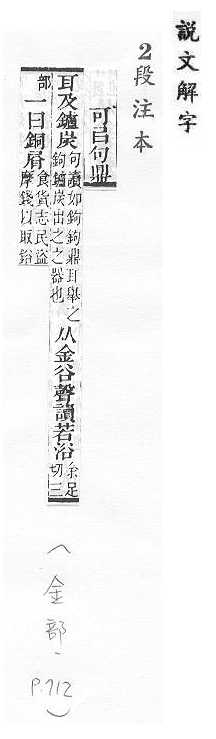 說文解字
2段注本
可㠯句鼎
耳及鑪炭句讀如鉤鉤鼎耳舉之鉤鑪炭出之之器也从金谷聲讀若浴余足切三
部一曰銅屑食貨志民盜摩錢以取鋊
(金部, P.712)